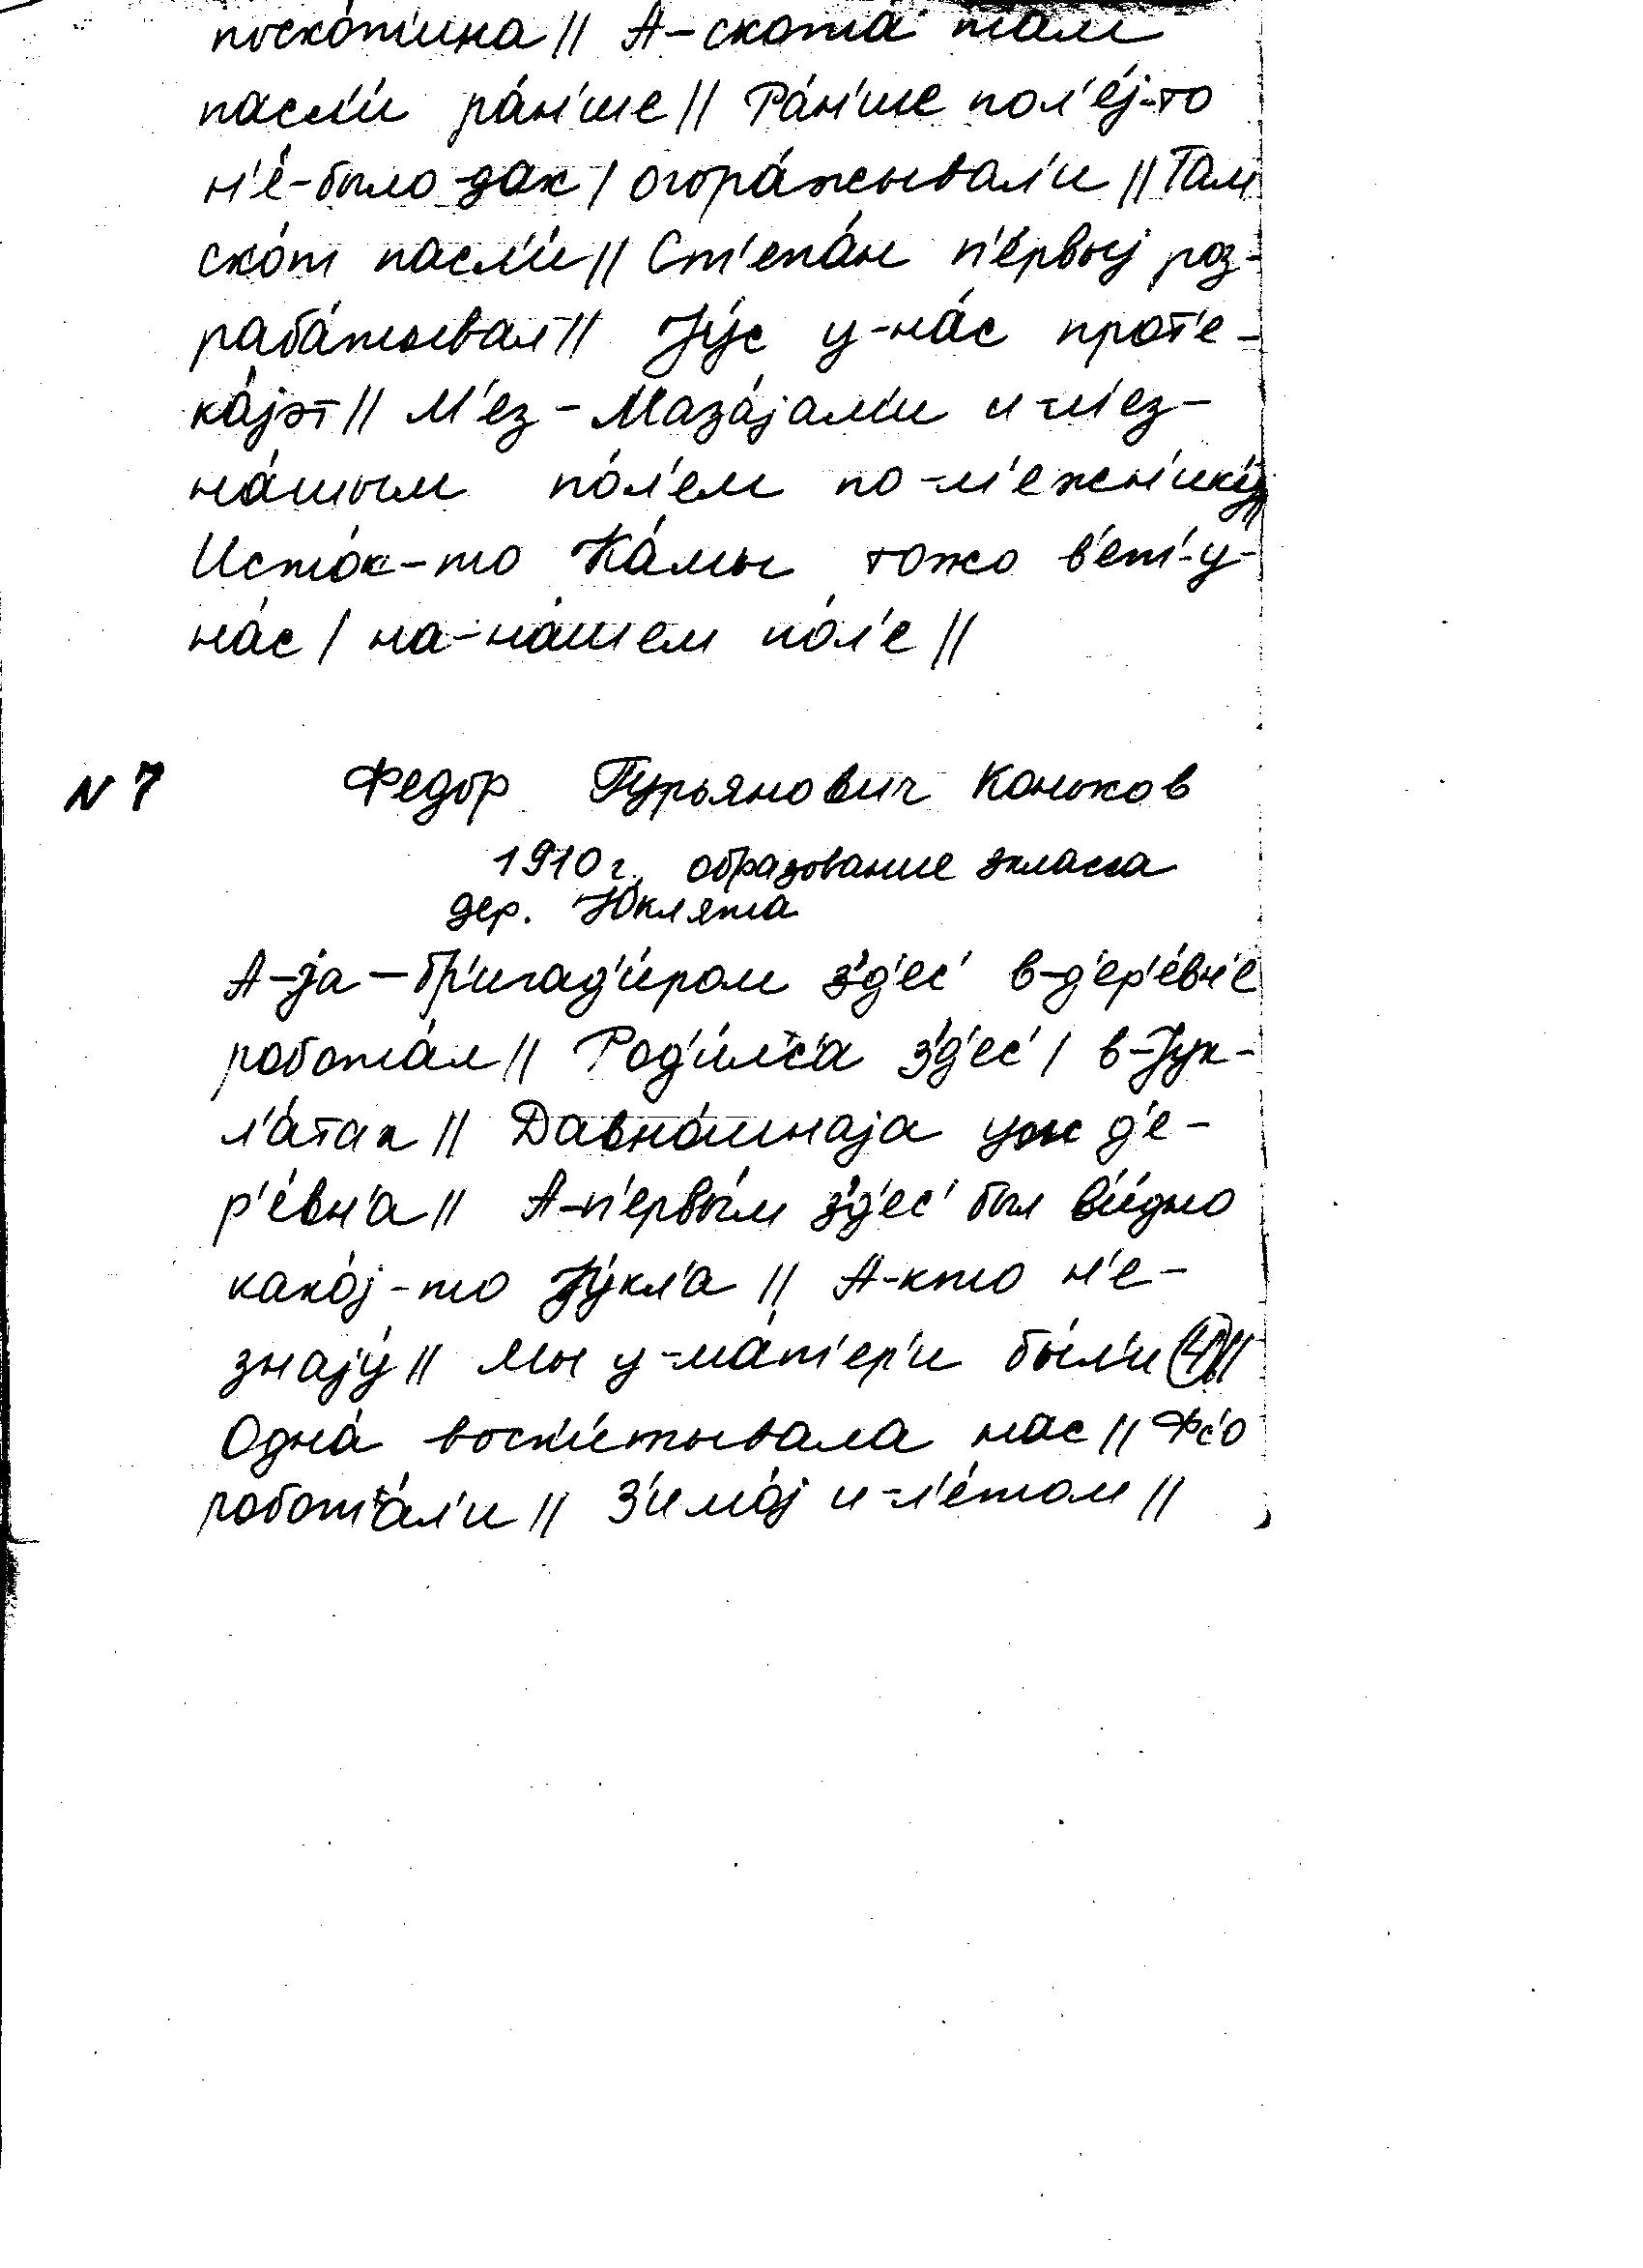 поско́т'ина // А-скота́ там
пасл'и́ ра́н'ше // Ра́н'ше пол'е́ј-то
н'е́-было дак / огора́жывал'и // Там
ско́т пасл'и́ // Ст'епа́н п'е́рвыј роз-
раба́тывал // Јýс у-на́с прот'е-
ка́јэт // М'ез-Маза́јам'и и-м'ез-
на́шым по́л'ем по-м'ежн'ику́ //
Исто́к-то Ка́мы тожо в'ет'-у-
на́с / на-на́шем по́л'е //
N 7 Федор Гурьянович Коньков
1910 г. образование 3 класса
дер. Юклята
А-ја-бр'игад'и́ром з'д'ес' в-д'ер'е́вн'е
робота́л // Род'и́лс'а з'д'ес' / в-Јук-
л'а́тах // Давно́шнаја уж д'е-
р'е́вн'а // А-п'ервы́м з'д'ес' был в'и́дно
како́ј-то Јýкл'а // А-кто н'е-
знају́ // Мы у-ма́т'ер'и бы́л'и (4) //
Одна́ восп'и́тывала нас // Фс'о
робота́л'и // З'имо́ј и-л'е́том //